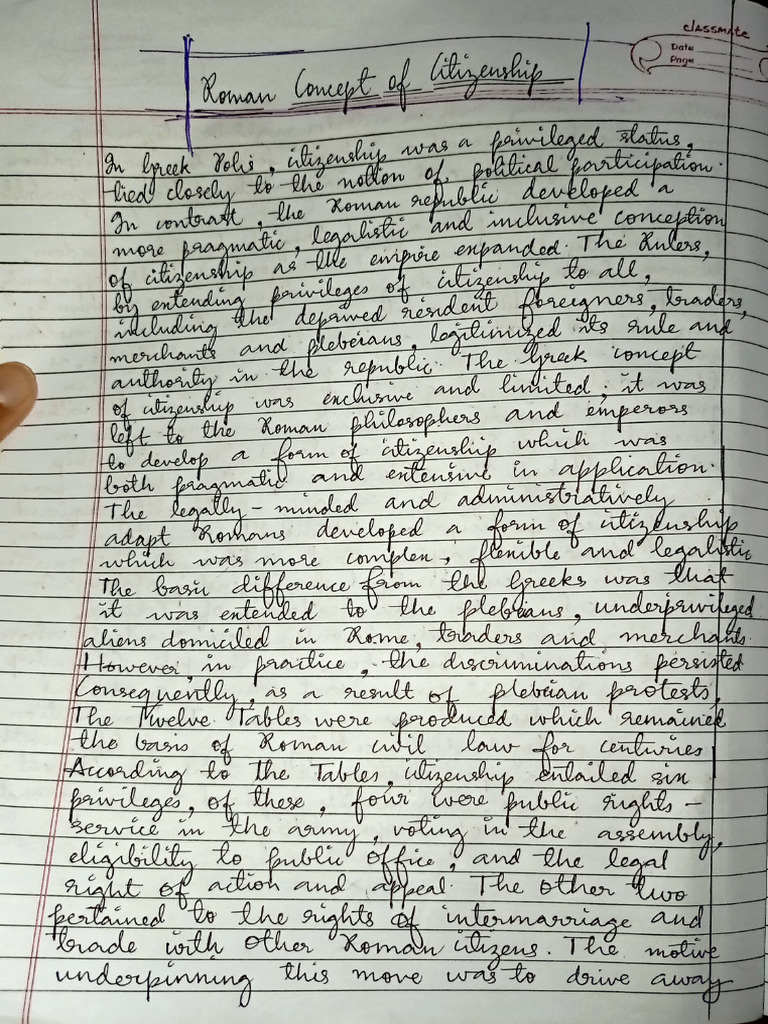 classmate
Date
Page
Roman Concept of Citizenship
In Greek Polis, citizenship was a privileged status,
tied closely to the notion of political participation.
In contrast, the Roman republic developed a
more pragmatic, legalistic and inclusive conception
of citizenship as the empire expanded. The Rulers,
by extending privileges of citizenship to all,
including the deprived resident foreigners, traders,
merchants and plebeians, legitimized its rule and
authority in the republic. The Greek concept
of citizenship was exclusive and limited; it was
left to the Roman philosophers and emperors
to develop a form of citizenship which was
both pragmatic and extensive in application.
The legally-minded and administratively
adapt Romans developed a form of citizenship
which was more complex, flexible and legalistic
The basic difference from the Greeks was that
it was extended to the plebeans, underprivileged
aliens domiciled in Rome, traders and merchants.
However, in practice, the discriminations persisted
Consequently, as a result of plebeian protests,
The Twelve Tables were produced which remained
the basis of Roman civil law for centuries
According to the Tables, citizenship entailed six
privileges, of these, four were public rights -
service in the army, voting in the assembly,
eligibility to public office, and the legal
right of action and appeal. The other two
pertained to the rights of intermarriage and
trade with other Roman citizens. The motive
underpinning this move was to drive away